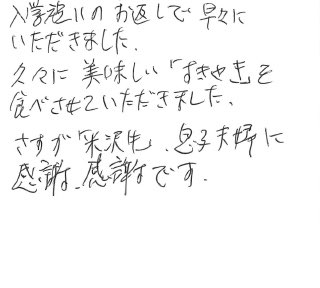 入学祝いのお返しで早々に
いただきました.
久々に美味しい「すきやき」を
食べさせていただきました.
さすが「米沢牛」、息子夫婦に
感謝、感謝です.